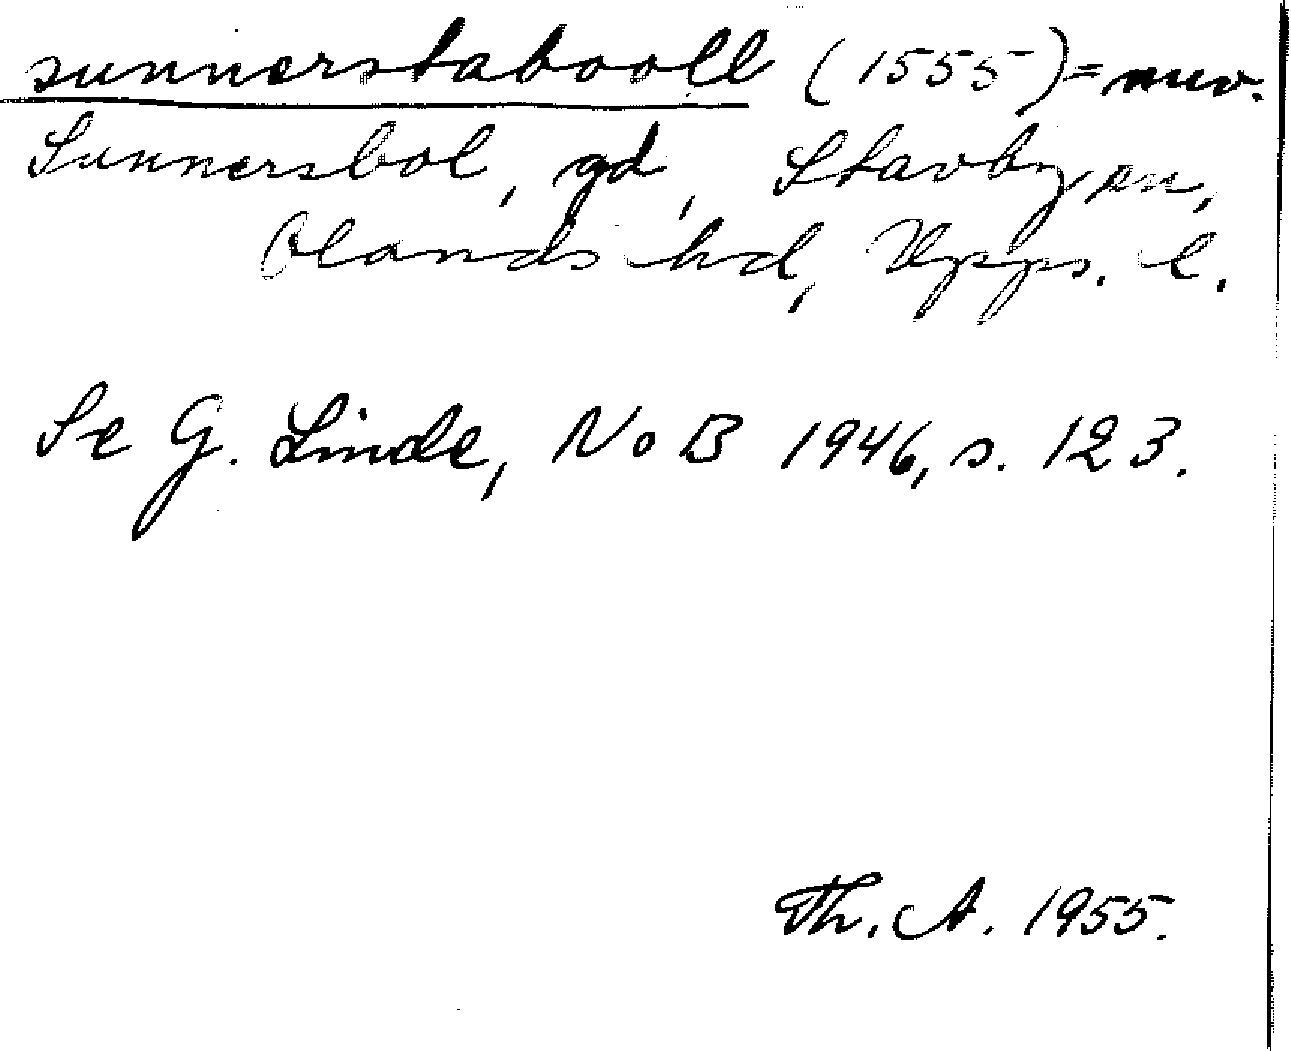 sunnerstabooll (1555) = nuv.
Sunnersbol, gd, Stavby sn,
Olands hd, Upps. l.
Se G. Linde, NoB 1946, s. 123.
Th. A. 1955.